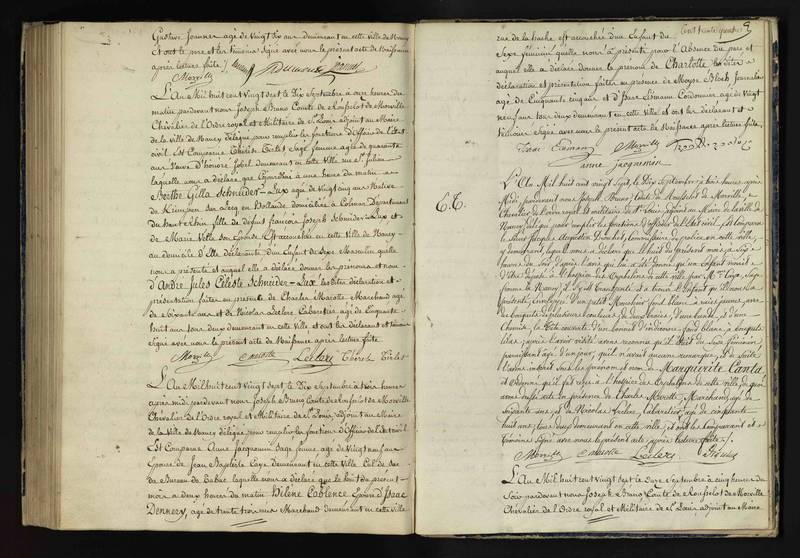 Gustave Jeannez agé de vingt six ans demeurant en cette ville de Nancy
et ont le père et les témoins signé avec nous le présent acte de Naissance
après lecture faite ./.
Morvilly
L'An Mil huit cent vingt sept le Dix Septembre à onze heures du
matin pardevant nous Joseph Bruno Comte de Rousselot de Morville
Chevalier de l'Ordre royal et Militaire de St Louis adjoint au Maire
de la Ville de Nancy délégué pour remplir les fonctions d'Officier de l'Etat
civil. Est Comparue Thérèse Tirlet Sage femme agée de quarante
ans Veuve d'honoré Jobel demeurant en cette Ville rue St Julien
laquelle nous a déclaré que aujourd'hui à une heure du matin
Berthe Gilla Schneider-Lux agée de vingt cinq ans Native
de en Hollande domiciliée à Colmar Département
du haut Rhin fille de defunt francois Joseph Schneider-Lux et
de Marie Villé son Epouse Est accouchée en cette Ville de Nancy
au domicile d'Elle déclarante d'un Enfant du Sexe Masculin quelle
nous a présenté et auquel elle a déclaré donner les prénoms et nom
d'André Jules Céleste Schneider-Lux. Les dites déclaration et
présentation faites en presence de Charles Marotte Marchand agé
de Soixante ans et de Nicolas Leclerc Cabaretier agé de Cinquante
huit ans tous deux demeurant en cette ville et ont les déclarant et témoins
Signé avec nous le présent acte de Naissance après lecture faite
Morville Marotte Leclerc Thérèse Tirlet
L'An Mil huit cent vingt sept, le Dix Septembre à trois heures
après midi pardevant nous Joseph Bruno Comte de Rousselot de Morville
Chevalier de l'Ordre royal et Militaire de St Louis, adjoint au Maire
de la Ville de Nancy délégué pour remplir les fonctions d'Officier de l'Etat civil
Est Comparue Anne Jacquemin Sage femme agée de vingt neuf ans
Epouse de Jean Baptiste Caye Demeurant en cette Ville Cul de Sac
du Bureau de Tabac laquelle nous a déclaré que le huit du present
mois à deux heures du matin Hélène Coblence Epouse d'Isaac
Dennery, agée de trente trois ans Marchand demeurant en cette ville
Cent trente quatre
rue de la hache est accouchée d'un Enfant du
Sexe féminin quelle nous a présenté pour l'Absence du père et
auquel elle a déclaré donner le prénom de Charlotte les dites
déclaration et présentation faites en presence de Moyse Bloch Journalier
agé de Cinquante cinq ans et d'Isaac Lismann Cordonnier agé de vingt
neuf ans tous deux demeurant en cette ville et ont les déclarant et
témoins Signé avec nous le présent acte de Naissance après lecture faite
Morville
anne jacquemin
L'An Mil huit cent vingt Sept, le Dix Septembre, à trois heures après
Midi pardevant nous Joseph Bruno Comte de Rousselot de Morville,
Chevalier de l'ordre royal et Militaire de St Louis adjoint au Maire de la Ville de
Nancy délégué pour remplir les fonctions d'Officier de l'Etat civil. Est comparu
le Sieur commissaire de police en cette ville,
y demeurant, lequel nous a déclaré que le huit du présent mois, à Six
heures du Soir
d'être déposé à l'hospice des Orphelins de cette ville, par
femme
d'un petit Mouchoir fond blanc à raies jaunes, avec
de bouquets de plusieurs couleurs,
Chemise, la tête couverte d'un bonnet d'indienne fond blanc,
lilas, après l'avoir visité avons reconnu qu'il était du Sexe féminin,
paraissant agé d'un jour, qu'il n'avait aucune remarque, et de Suite
l'avons inscrit sous les prénom et nom de Marguerite Canta,
et ordonné qu'il fût remis à l'hospice des Orphelins de cette ville, de quoi
avons rédigé acte, en présence de Charles Marotte, Marchand, agé de
Soixante ans, et de Nicolas Leclerc, Cabaretier, agé de cinquante
huit ans, tous deux demeurant en cette ville, et ont les comparant et
témoins Signé avec nous le présent acte, après lecture faite ./.
Morville Marotte Leclerc
L'An Mil huit cent vingt Sept le Onze Septembre à cinq heures du
Soir pardevant nous Joseph Bruno Comte de Rousselot de Morville
Chevalier de l'Ordre royal et Militaire de St Louis adjoint au Maire